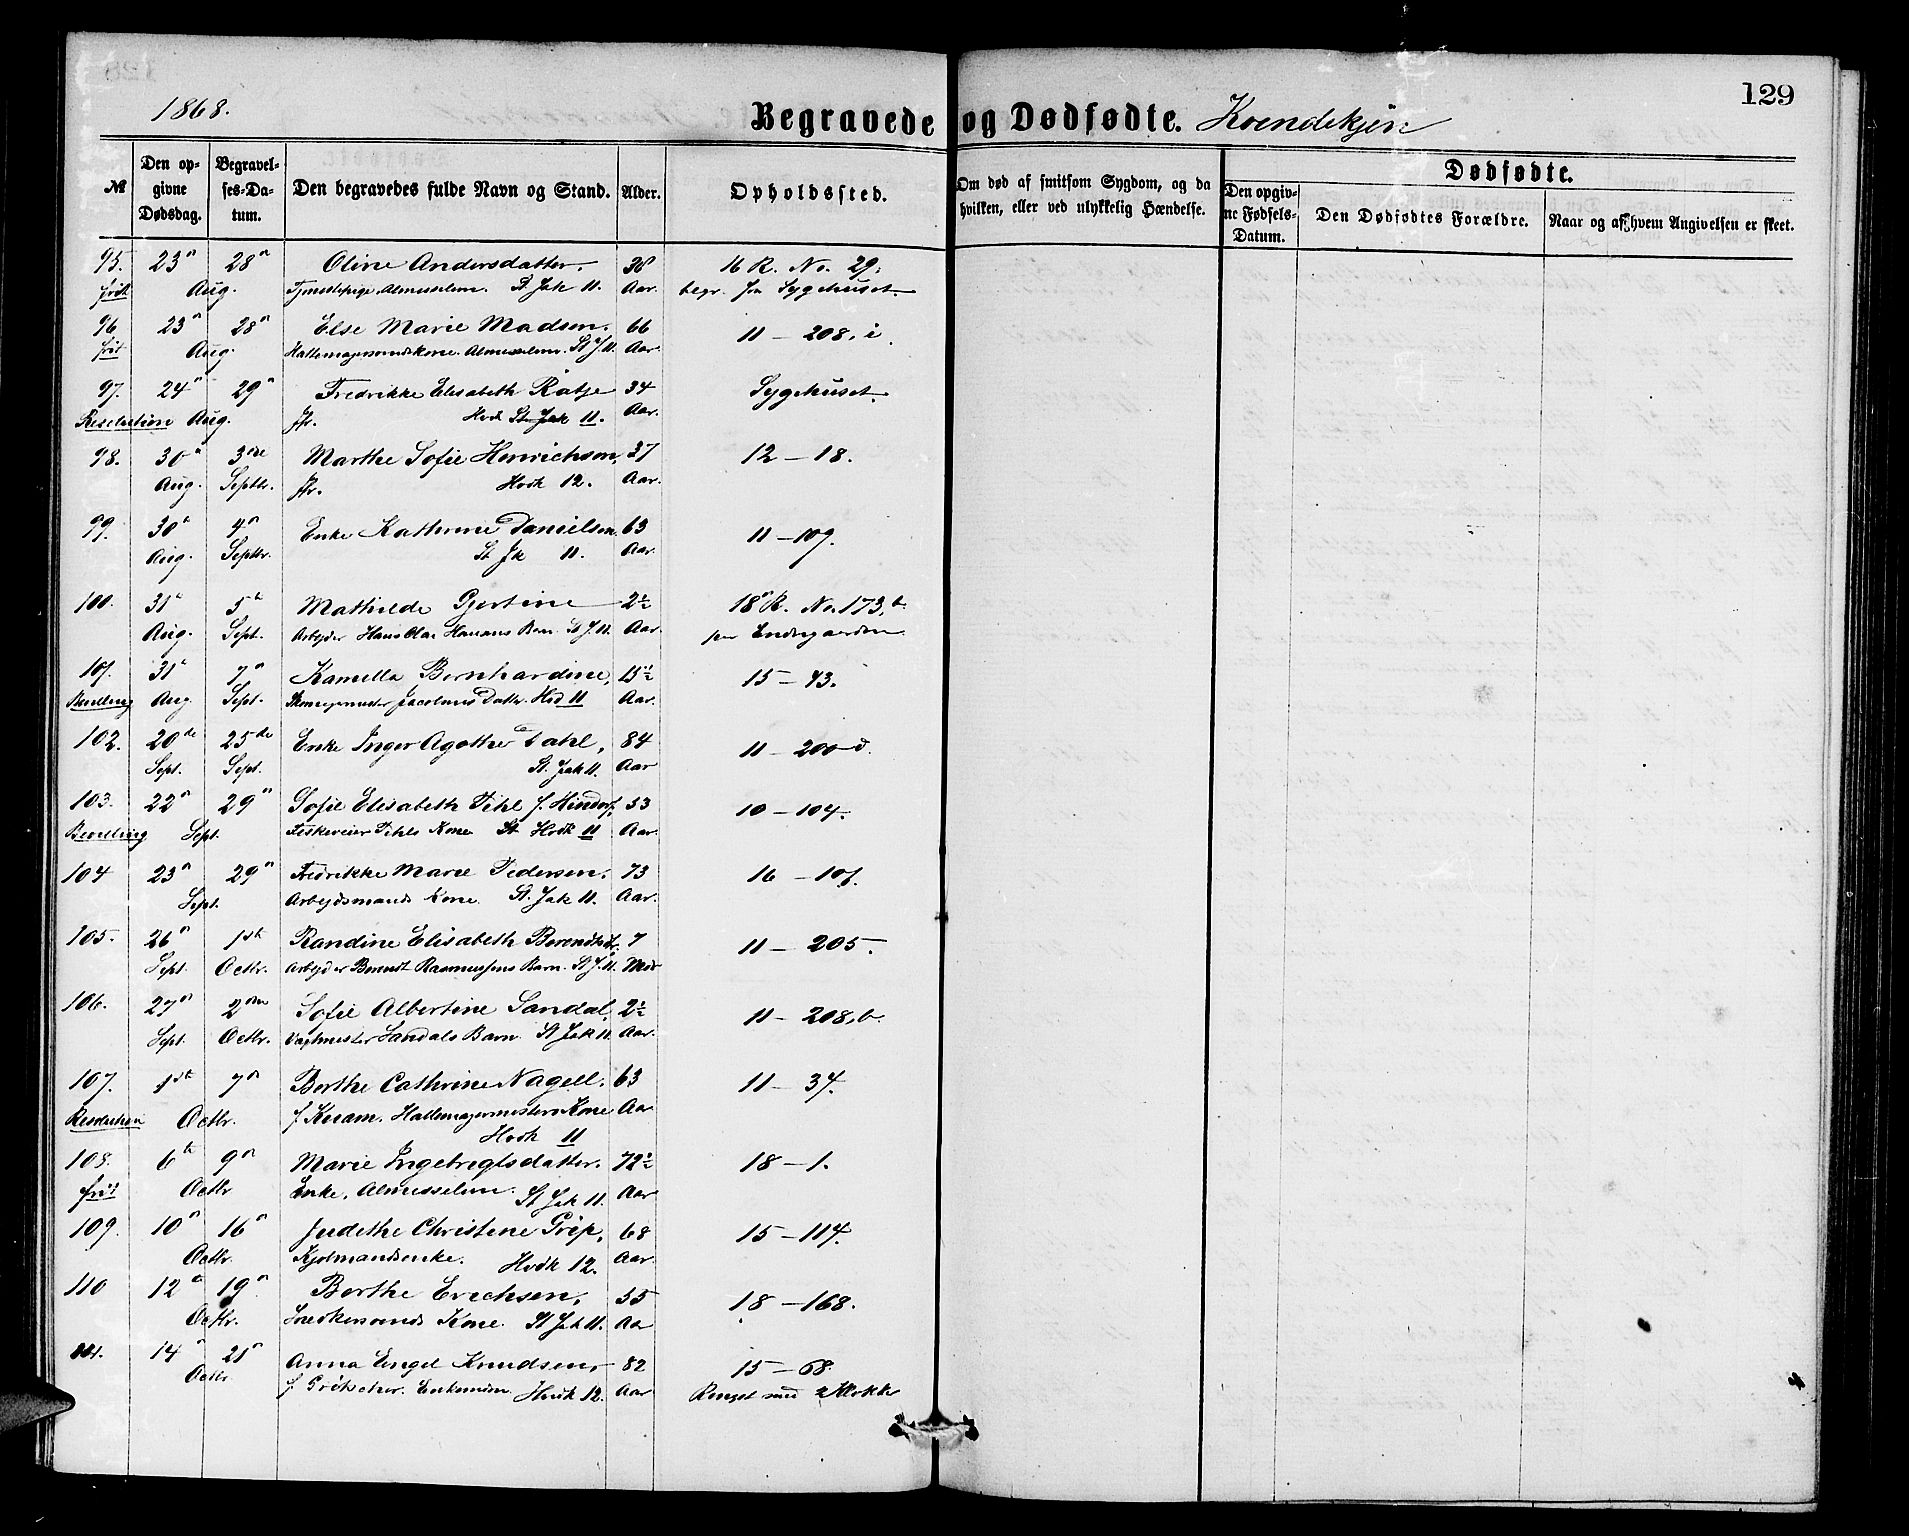 129
1868.
Begravede og Dødfødte. Kvindekjøn
№
Den opgivne Dødsdag.
Begravelses-Datum.
Den begravedes fulde Navn og Stand.
Alder.
Opholdssted.
Om død af smitsom Sygdom, og da hvilken, eller ved ulykkelig Hændelse.
Dødfødte.
Den opgivne Fødsels-Datum.
Den Dødfødtes Forældre.
Naar og af hvem Angivelsen er skeet.
95. 23 28 Oline Andersdatter. 38 16 R. No. 29.
frit Aug. Tjenestepige. Almisselem. St Jak 11. Aar. begr. fra Sygehuset.
96 23 28 Else Marie Madsen. 66 11 – 208. i
frit Aug. Hattemagersvendskone. Almisselem. St J. 11. Aar.
97. 24 29 Fredrikke Elisabeth Rätje 34 Sygehuset.
Resolution Aug. Jfr. Hvdk St Jak 11. Aar.
98. 30 3 Marthe Sofie Henrichsen, 37 12 – 18.
Aug. Septbr. Jfr. Hvdk 12. Aar.
99. 30 4 Enke Kathrine Danielsen 63 11 – 109.
Aug. Septbr. St Jk 11. Aar.
100. 31 5 Mathilde Gjertine 2½ 18 R. No. 173, b.
Aug. Sept. Arbeider Hans Olai Hansens Barn. St J. 11. Aar.
101. 31 7 Kamilla Bernhardine, 15½ 15 – 43.
Bevilling Aug Sept. Jacobsens Datter. Hvd 11 Aar.
102. 20de 25de Enke Inger Agathe Dahl, 84 11 – 200 d.
Sept. Sept. St. Jak 11. Aar
103. 22 29 Sofie Elisabeth Pihl f. Hindorf, 53 10 – 104.
Bevilling Sept. Pihls Kone St Hvdk 11 Aar.
104 23 29 Fredrikke Marie Pedersen. 73 16 – 101.
Sept. Arbeidsmands Kone. St. Jak 11. Aar.
105. 26 1ste Randine Elisabeth Berendtsd. 7 11 – 205.
Sept. Octbr. Arbeider Berendt Rasmussens Barn. St J. 11. Mdr
106. 27 2den Sofie Albertine Sandal, 2½ 11 – 208, b.
Sept. Octbr. Vagtmester Sandals Barn. St Jak 11 Aar.
107. 1ste 7 Berthe Cathrine Nagell. 63 11 – 34.
Resolution Octbr. f. Knam. Hattemagermesters Kone Aar
Hvdk 11
108. 6 9 Marie Ingebrigtsdatter. 72½ 18 – 1.
frit Octbr Enke. Almisselem. St Jak 11. Aar
109. 10 16 Judethe Christine Grip, 68 15 – 114.
Octbr. Kjøbmandsenke. Hvdk 12. Aar.
110 12 19 Berthe Erichsen, 55 18 – 168.
Octbr. Snedkersvends Kone. St Jak 11. Aar
111. 14 21 Anna Engel Knudsen, 82 15 – 68.
Octbr f. Enkemdm. Hvdk 12. Aar Ringet med 2 Klokker